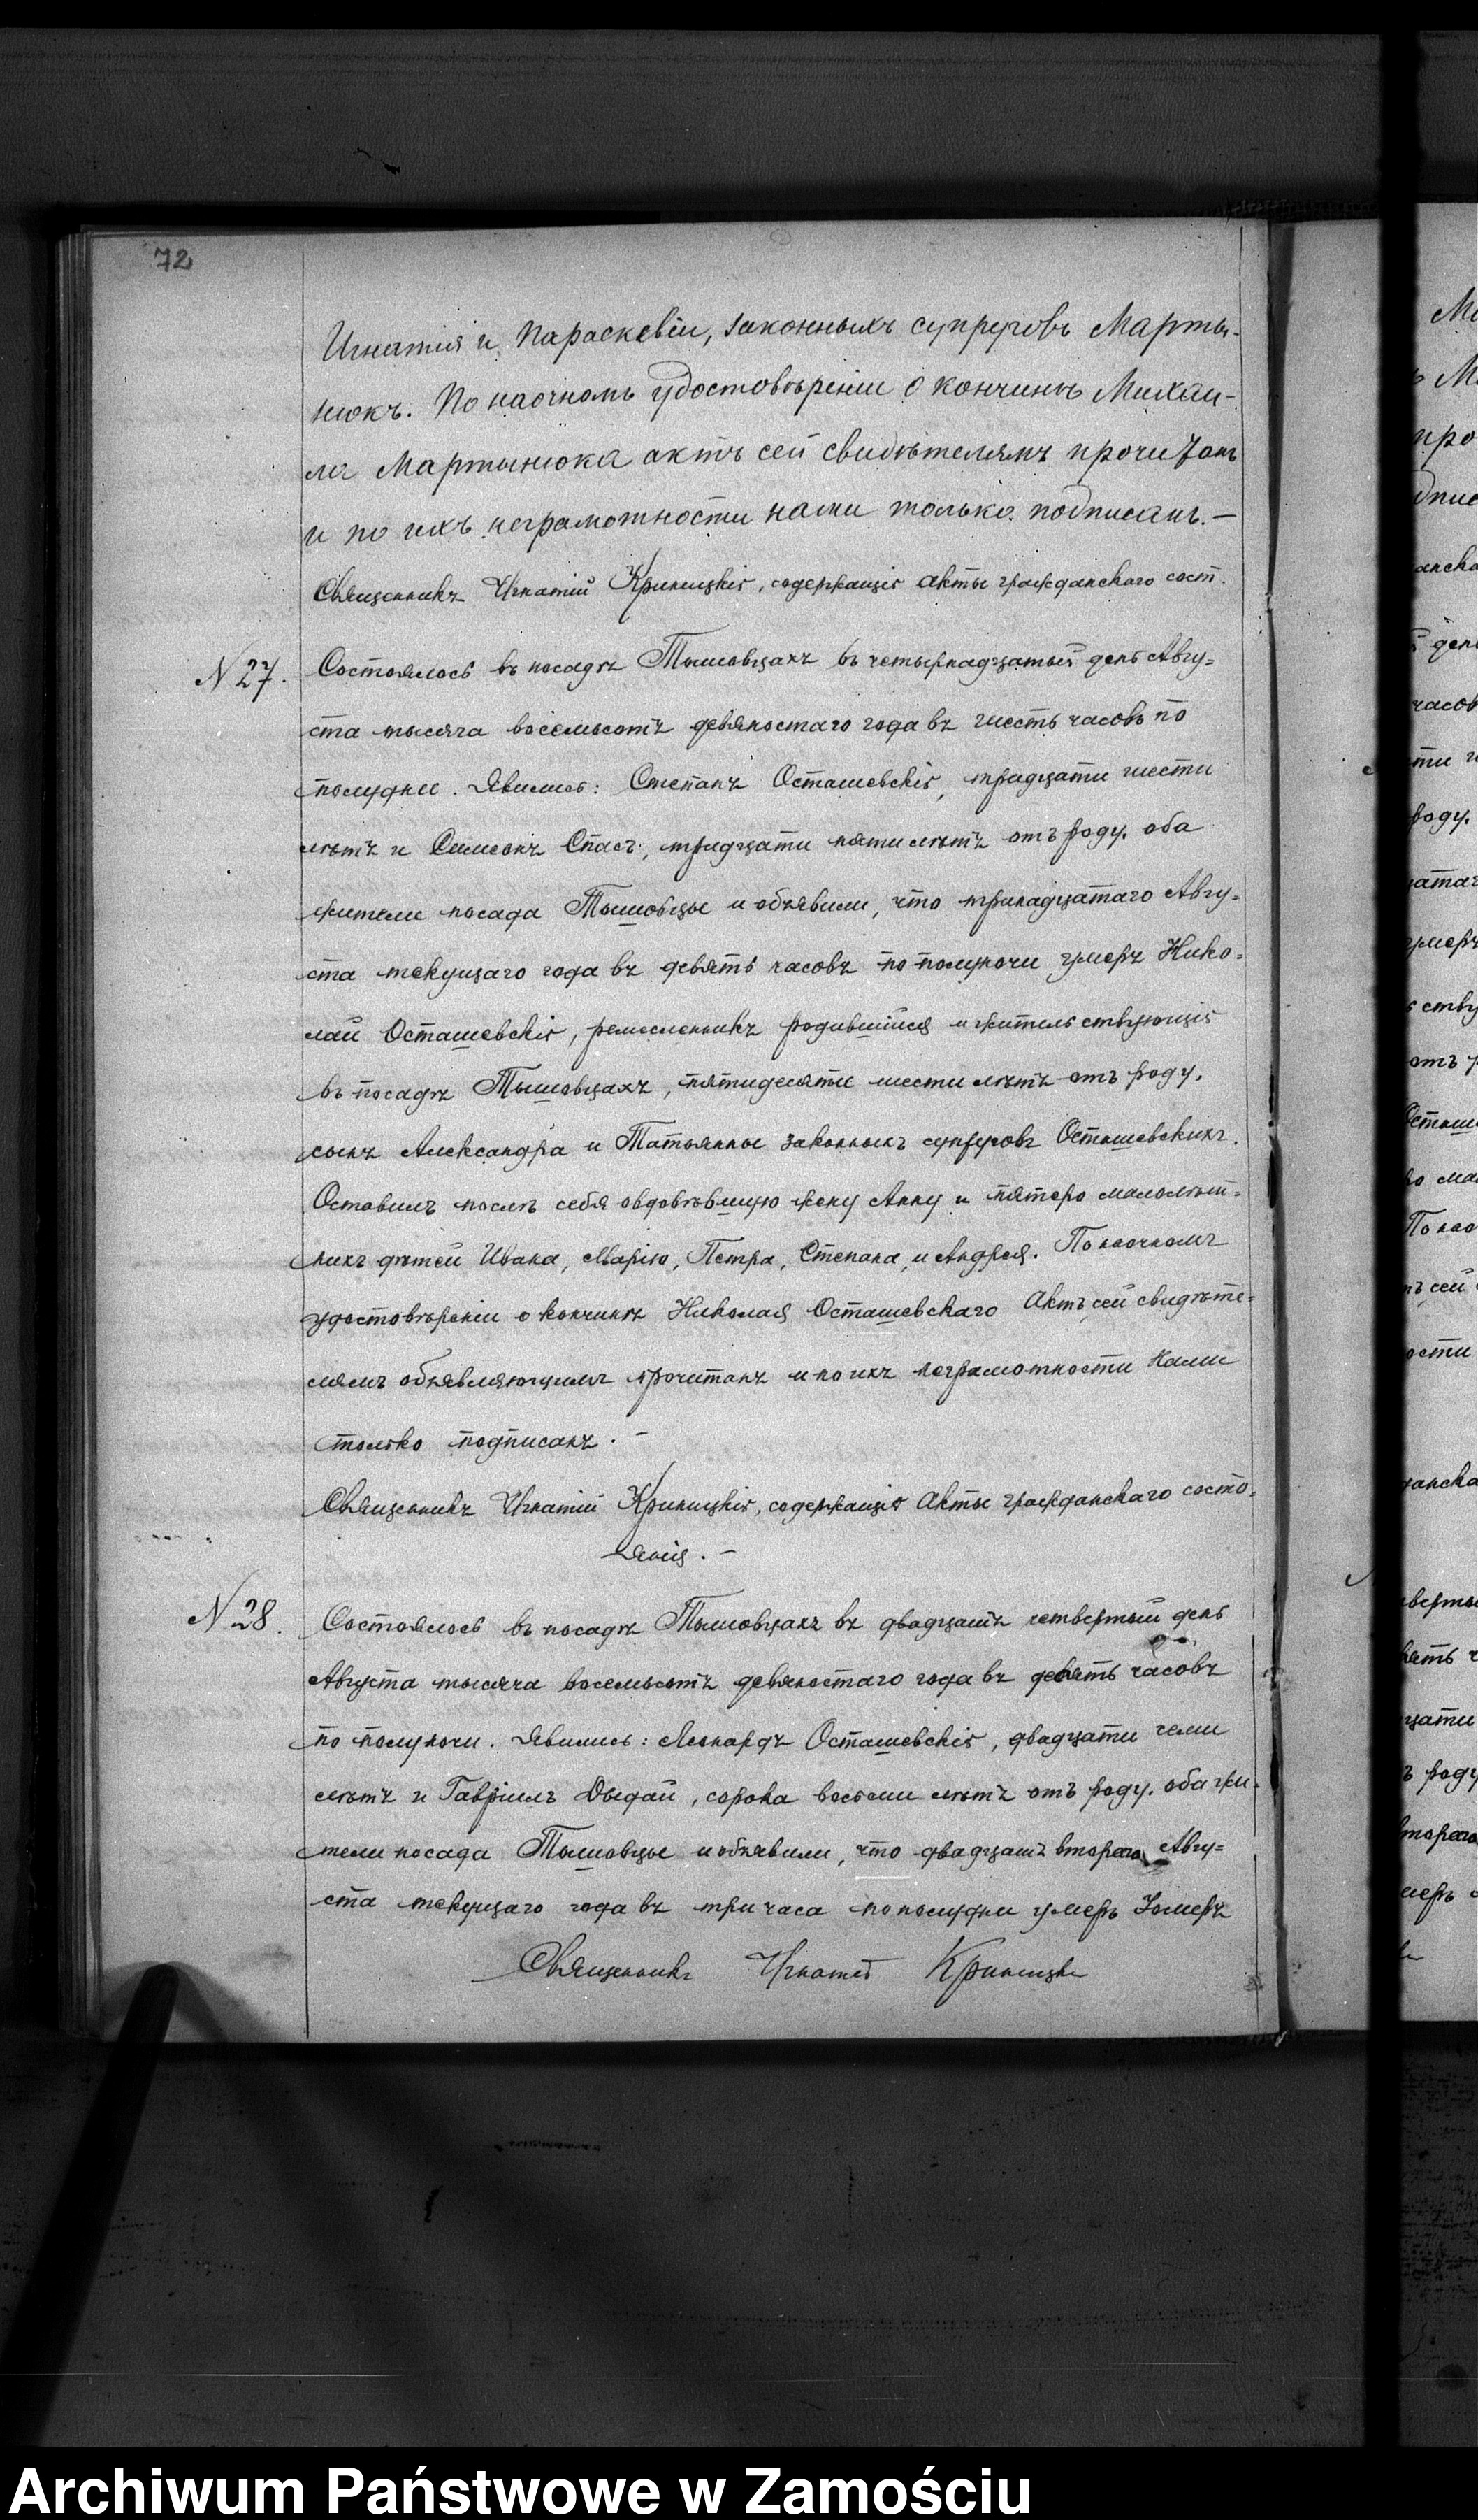 72
Игнатія и Параскевіи, законныхъ супруговъ Марты-
нюкъ. По наочномъ удостовѣреніи о кончинѣ Михаи-
ла Мартынюка актъ сей свидѣтелямъ прочитанъ
и по ихъ неграмотности нами только подписанъ. —
Священникъ Игнатій Криницкій, содержащій акты гражданскаго сост.
N 27. Состоялось въ посадѣ Тышовцахъ въ четырнадцатый день Авгу=
ста тысяча восемьсотъ девяностаго года въ шесть часовъ по
полудни. Явились: Степанъ Осташевскій, тридцати шести
лѣтъ и Симеонъ Спасъ, тридцати пяти лѣтъ отъ роду, оба
жители посада Тышовцы и объявили, что тринадцатаго Авгу=
ста текущаго года въ девять часовъ по полуночи умеръ Нико=
лай Осташевскій, ремесленникъ родившійся и жительствующій
въ посадѣ Тышовцахъ, пятидесяти шести лѣтъ отъ роду,
сынъ Александра и Татьянны законныхъ супруговъ Осташевскихъ.
Оставилъ послѣ себя овдовѣвшую жену Анну и пятеро малолѣт=
нихъ дѣтей Ивана, Марію, Петра, Степана, и Андрея. По наочномъ
удостовѣреніи о кончинѣ Николая Осташевскаго Актъ сей свидѣте=
лямъ объявляющимъ прочитанъ и по ихъ неграмотности нами
только подписанъ. —
Священникъ Игнатій Криницкій, содержащій Акты гражданскаго состо=
янія. —
N 28. Состоялось въ посадѣ Тышовцахъ въ двадцать четвертый день
Августа тысяча восемьсотъ девяностаго года въ девять часовъ
по полуночи. Явились: Леонардъ Осташевскій, двадцати семи
лѣтъ и Гавріилъ Дыдай, сорока восьми лѣтъ отъ роду, оба жи-
тели посада Тышовцы и объявили, что двадцать второго Авгу=
ста текущаго года въ три часа по полудни умеръ
Священникъ Игнатій Криницкій
Archiwum Państwowe w Zamościu